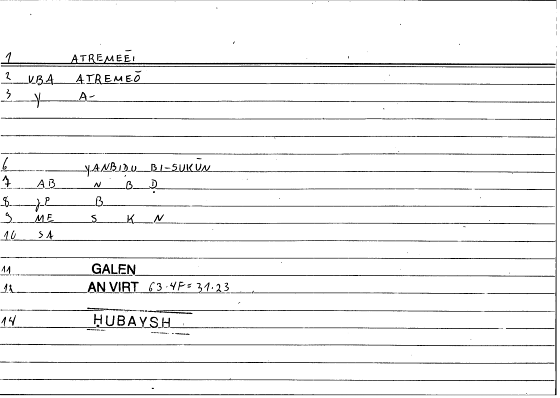 1 ATREMEĒI
2 VBA ATREMEŌ
3 Y A-
6 YANBIḌU BI-SUKŪN
7 AB N B Ḍ
8 B
9 ME S K N
10 SA
11 GALEN
12 AN VIRT 63.4F=31.23
14 ḤUBAYSH